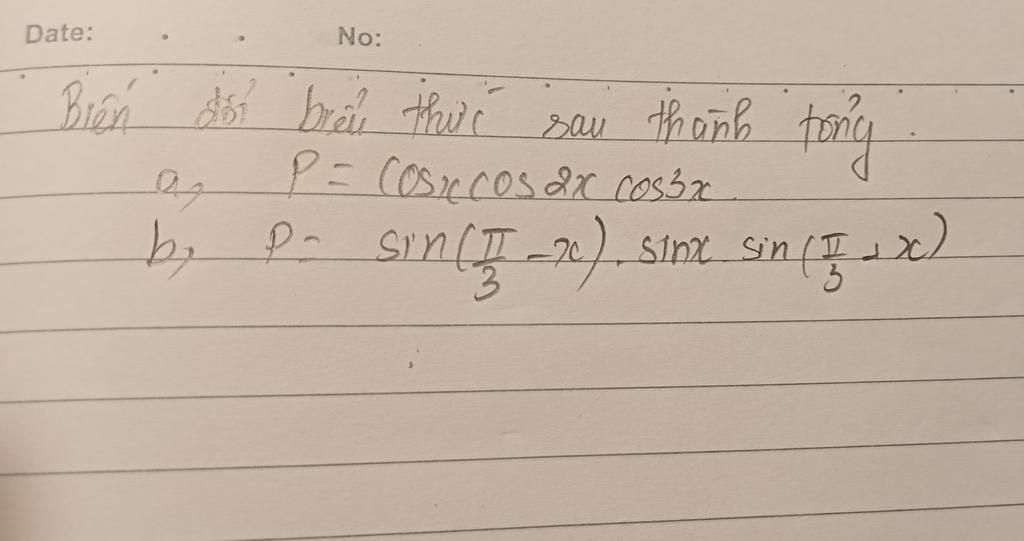 Date: No:
Biến đổi biểu thức sau thành tổng.
a, P = cosx cos 2x cos3x.
b, P = sin(π/3 - x). sinx sin(π/3 + x)